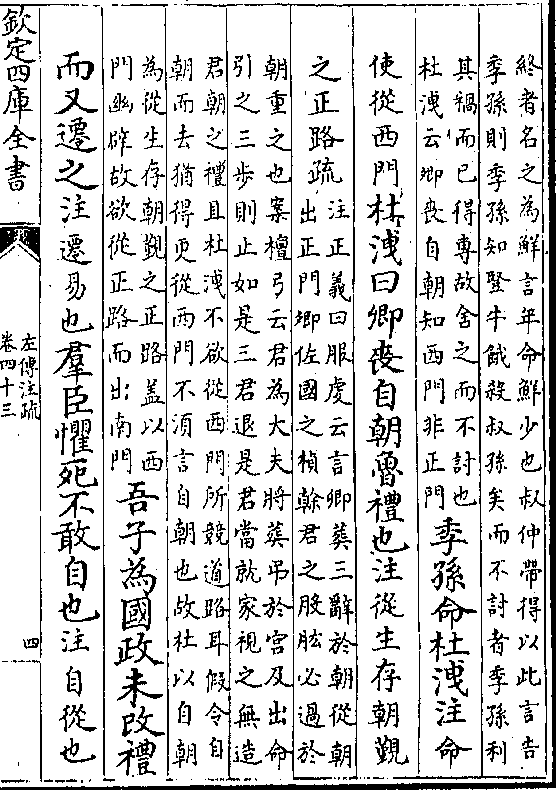 終者名之為鮮言年命鮮少也叔仲帶得以此言告
季孫則季孫知豎牛餓殺叔孫矣而不討者季孫利
其禍而已得專故舍之而不討也
杜洩云卿喪自朝知西門非正門
季孫命杜洩注命
使從西門杜洩曰卿喪自朝魯禮也注從生存朝覲
之正路疏
注正義曰服虔云言卿葬三辭於朝從朝
出正門卿佐國之楨榦君之股肱必過於
朝重之也案檀弓云君為大夫將葬弔於宮及出命
引之三步則止如是三君退是君當就家視之無造
君朝之禮且杜洩不欲從西門所競道路耳假令自
朝而去猶得更從西門不須言自朝也故杜以自朝
為從生存朝覲之正路蓋以西
門幽辟故欲從正路而出南門
吾子為國政未改禮
而又遷之注遷易也羣臣懼死不敢自也注自從也
欽定四庫全書
左傳注疏
卷四十三
四